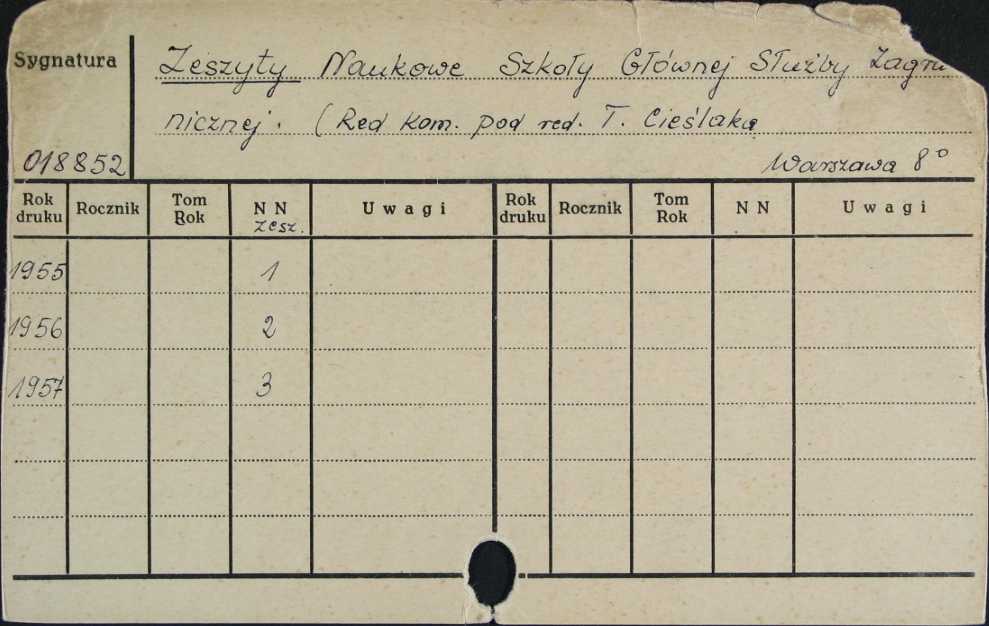 Sygnatura
Zeszyty Naukowe Szkoły Głównej Służby Zagra
nicznej. (Red kom. pod red. T. Cieślaka
018852
Warszawa 8°
Rok druku Rocznik Tom Rok N N zesz. Uwagi Rok druku Rocznik Tom Rok N N Uwagi
1955 1
1956 2
1957 3